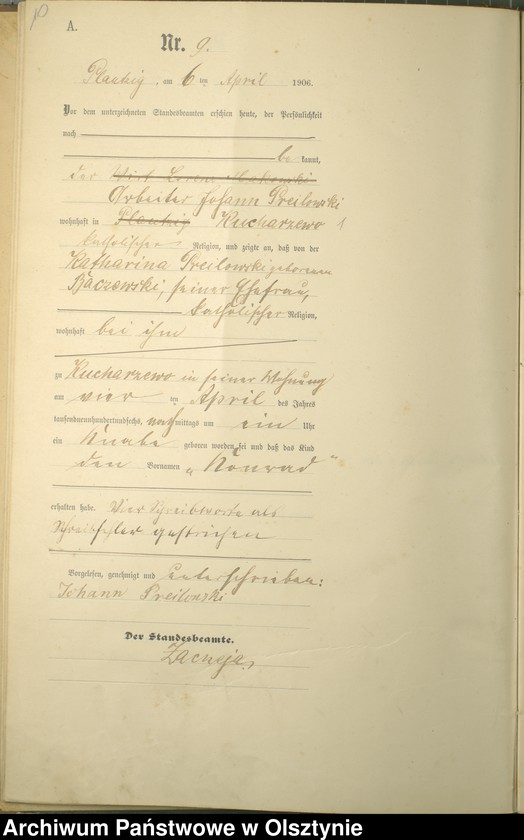 10
A.
Nr. 9.
am 6 ten April 1906.
Vor dem unterzeichneten Standesbeamten erschien heute, der Persönlichkeit
nach
be kannt,
der Wirt Lorenz
Arbeiter Johann Preilowski
wohnhaft in Plautzig Kucharzewo
katholischer Religion, und zeigte an, daß von der
Katharina Preilowski geborenen
Baczewski, seiner Ehefrau,
katholischer Religion,
wohnhaft bei ihm
zu Kucharzewo in seiner Wohnung
am vier ten April des Jahres
tausendneunhundertundsechs, nachmittags um ein Uhr
ein Knabe geboren worden sei und daß das Kind
den Vornamen „Konrad“
erhalten habe. Vier Schreibworte als
Schreibfehler gestrichen
Vorgelesen, genehmigt und unterschrieben:
Johann Preilowski
Der Standesbeamte.
Archiwum Państwowe w Olsztynie